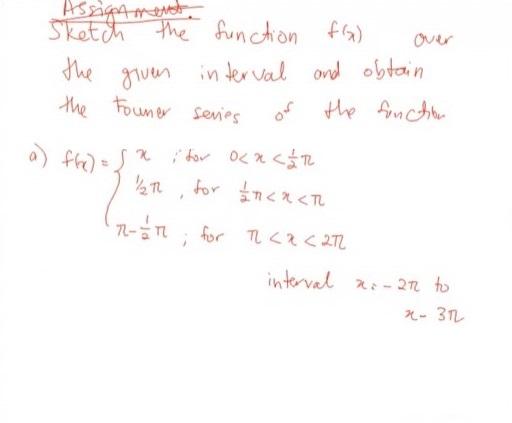 Assignment.
Sketch the function f(x) over
the given interval and obtain
the Fourier series of the function
a) f(x) = { x ; for 0 < x < ½π
½π , for ½π < x < π
π - ½π ; for π < x < 2π
interval x = -2π to
x - 3π